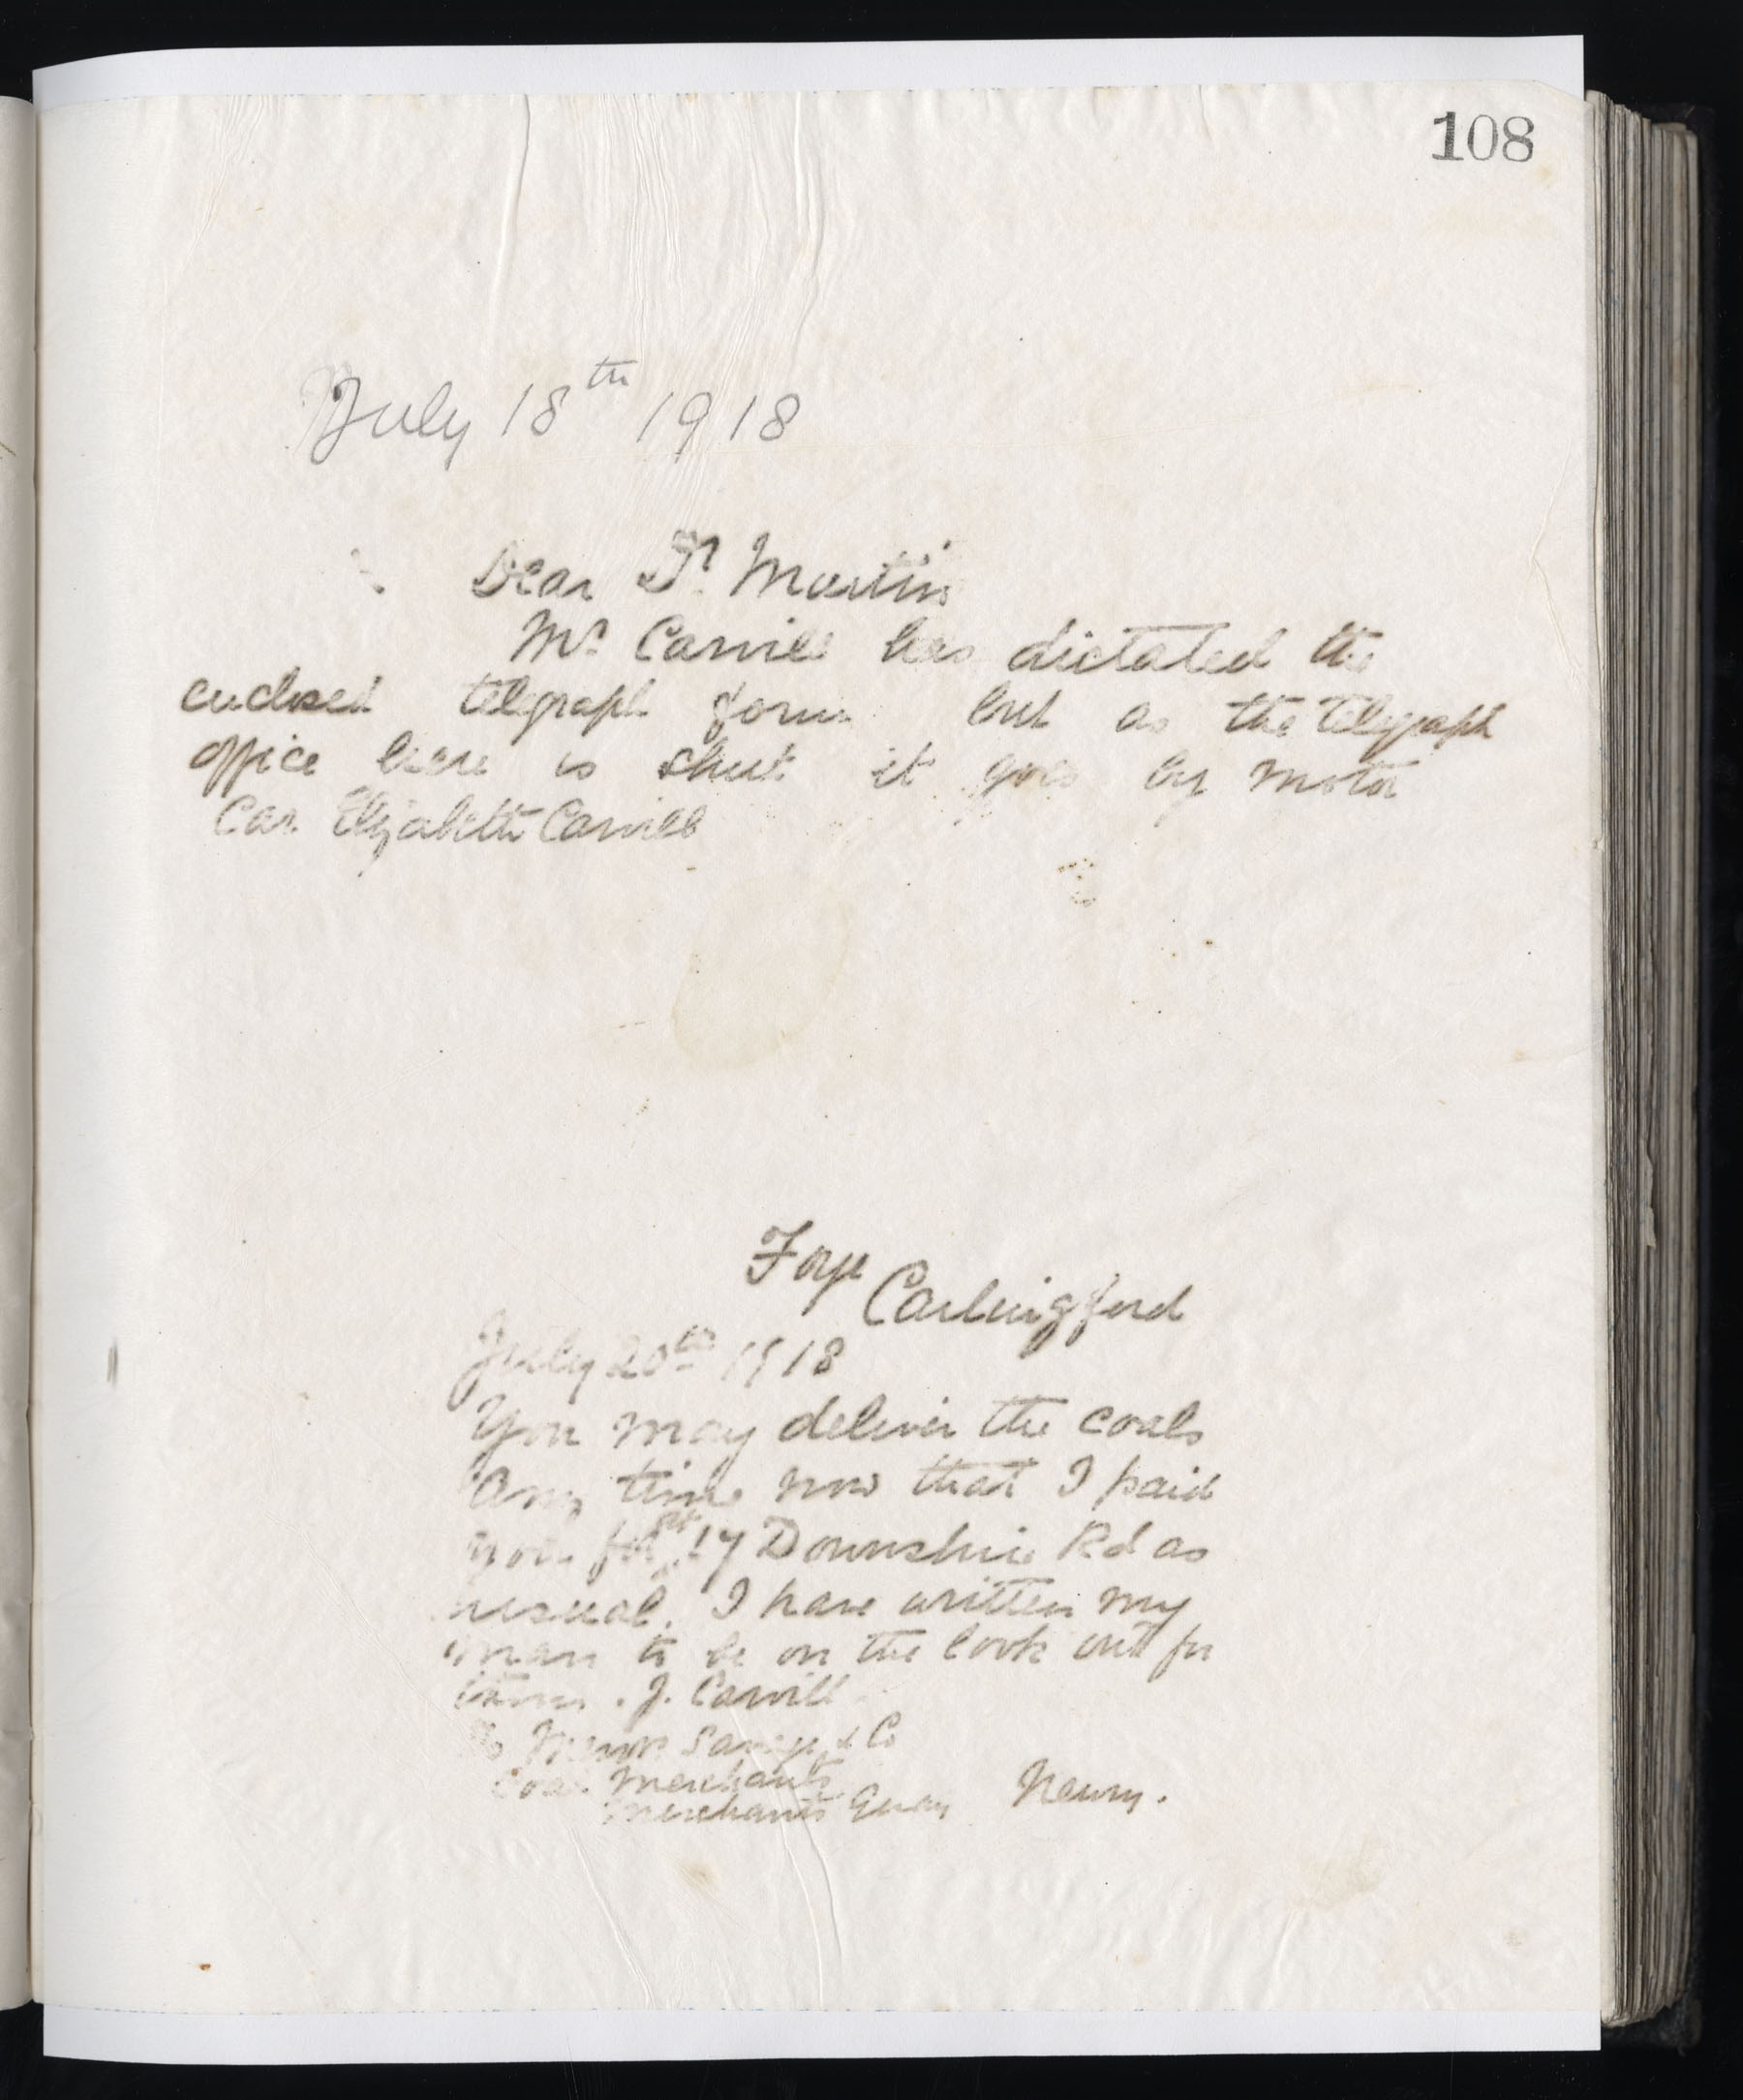 108
July 18th 1918
Dear Dr Martin
Mr Carvill has dictated the
enclosed telegraph form but as the telegraph
office here is shut it goes by motor
Car. Elizabeth Carvill
Faye
Carlingford
July 20th 1918
You may deliver the coals
Any time now that I paid
you for at 17 Downshire Rd as
usual. I have written my
man to be on the look out for
them. J. Carvill
To Messrs & Co
Coal Merchants
Merchants Quay Newry.